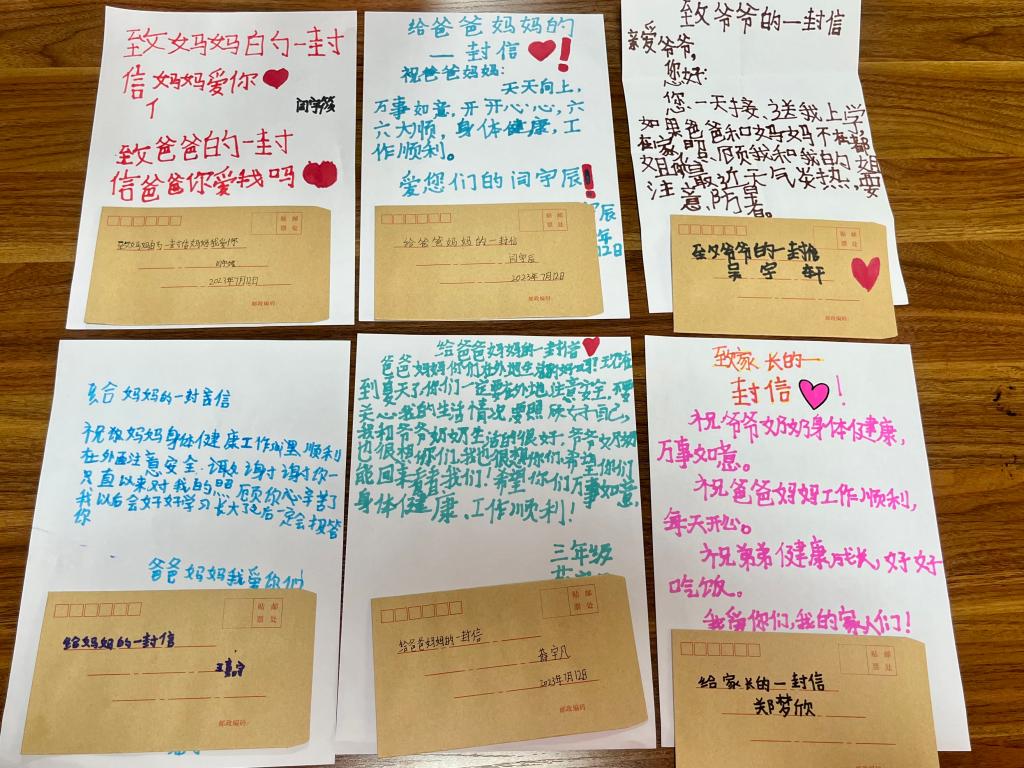 致妈妈的一封
信妈妈爱你
闫宇筱
致爸爸的一封
信爸爸你爱我吗
贴 邮
票 处
致妈妈的一封信妈妈我爱你
2023年7月12日
邮政编码:
给爸爸妈妈的
一封信!
祝爸爸妈妈:
天天向上,
万事如意,开开心心,六
六大顺,身体健康,工
作顺利。
爱您们的闫宇辰!
贴 邮
票 处
给爸爸妈妈的一封信
闫宇辰
2023年7月12日
邮政编码:
致爷爷的一封信
亲爱爷爷,
您好:
您一天接、送我上学,
如果爸爸和妈妈不在
最近天气炎热,要
注意防暑。
贴 邮
票 处
致爷爷的一封信
吴宇轩
邮政编码:
给妈妈的一封信
祝妈妈身体健康工作顺利
在外面注意安全.谢谢你一
只直以来对我的照顾你心辛苦了
我以后会好好学习长大之后一定会报答
你
爸爸妈妈我爱你们
贴 邮
票 处
给妈妈的一封信
邮政编码:
给爸爸妈妈的一封信
爸爸妈妈你们在外地生活
到夏天了你们一定要在外地注意安全,
关心我的生活情况要照顾好自己,
我和爷爷奶奶生活的很好,爷爷奶奶
也很想你们,我也很想你们,希望你们
能回来看看我们!希望你们万事如意,
身体健康、工作顺利!
三年级
贴 邮
票 处
给爸爸妈妈的一封信
2023年7月12日
邮政编码:
致家长的一
封信!
祝爷爷奶奶身体健康,
万事如意。
祝爸爸妈妈工作顺利,
每天开心。
祝弟弟健康成长,好好
吃饭。
我爱你们,我的家人们!
贴 邮
票 处
给家长的一封信
郑梦欣